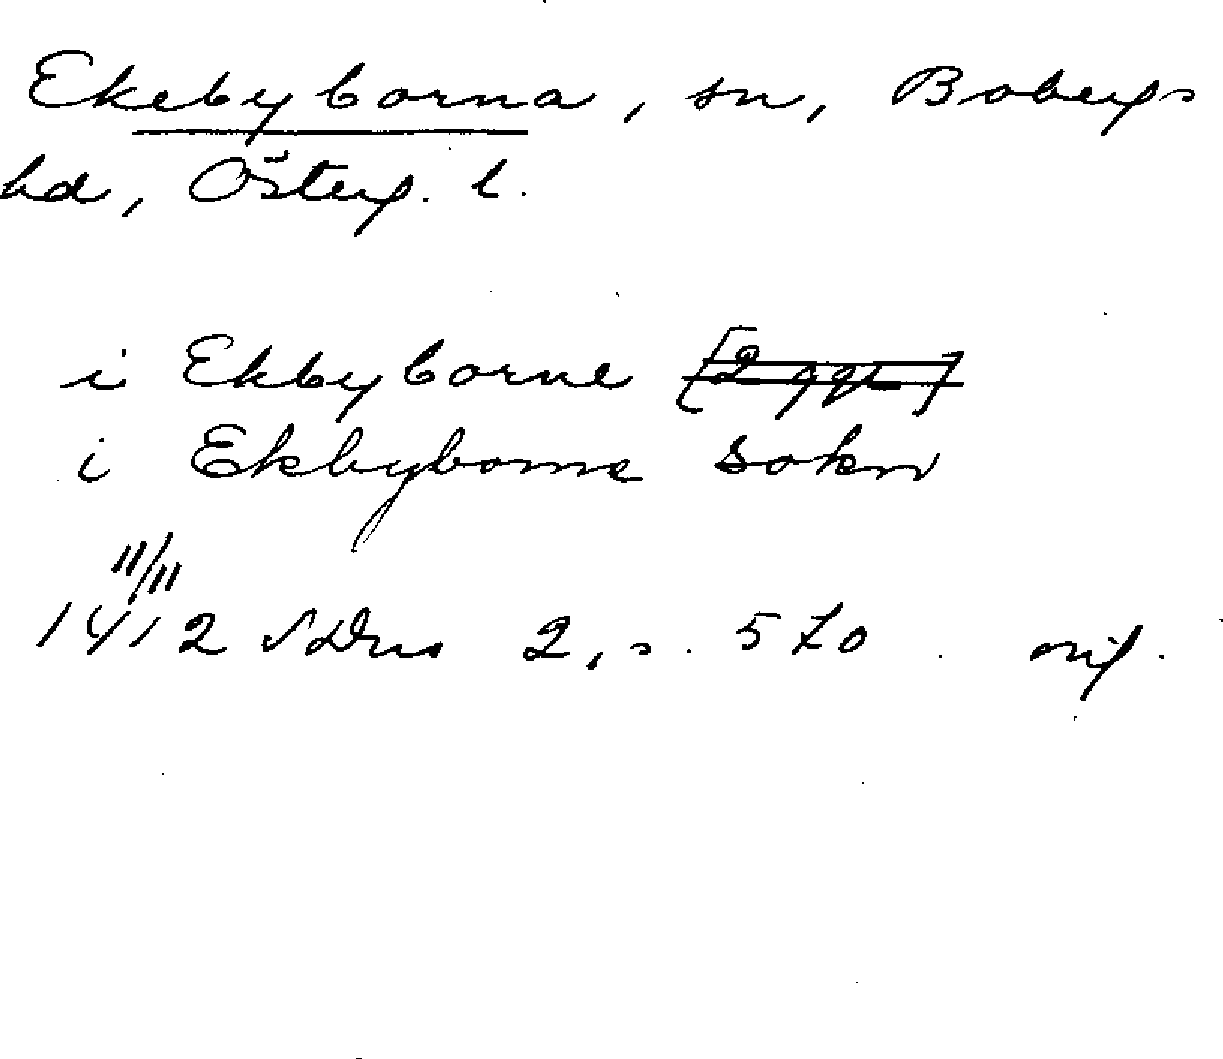 Ekebyborna, sn, Bobergs
hd, Österg. l.
i Ekbyborne [2 ggr]
i Ekbyborne sokn
11/11
1412 SDns 2, s. 570 orig.